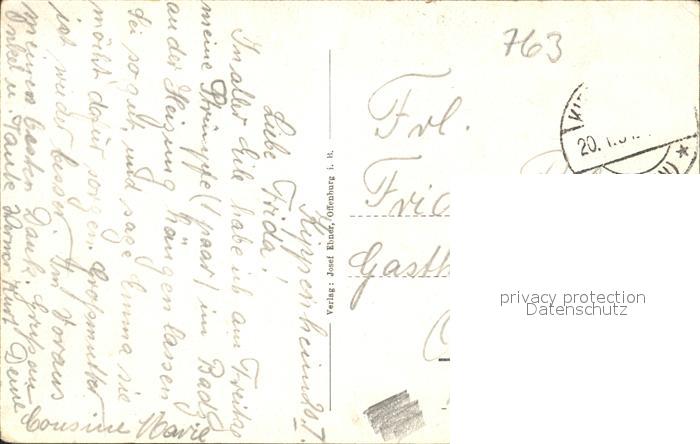 Kippenheim 20. I.
Liebe Frida!
In aller Eile habe ich am Freitag
meine Strümpfe (1 paar) im Bad
an der Heizung hängen lassen
sei so gut, und sage Emma sie
möcht dafür sorgen. Grossmutter
ist wieder besser. Im Voraus
meinen besten Dank. Grüsse an
Onkel u. Tante Werner Kurt Deine
Cousine Marie
Verlag: Josef Ebner, Offenburg i. B.
763
Frl.
Gasth
privacy protection
Datenschutz